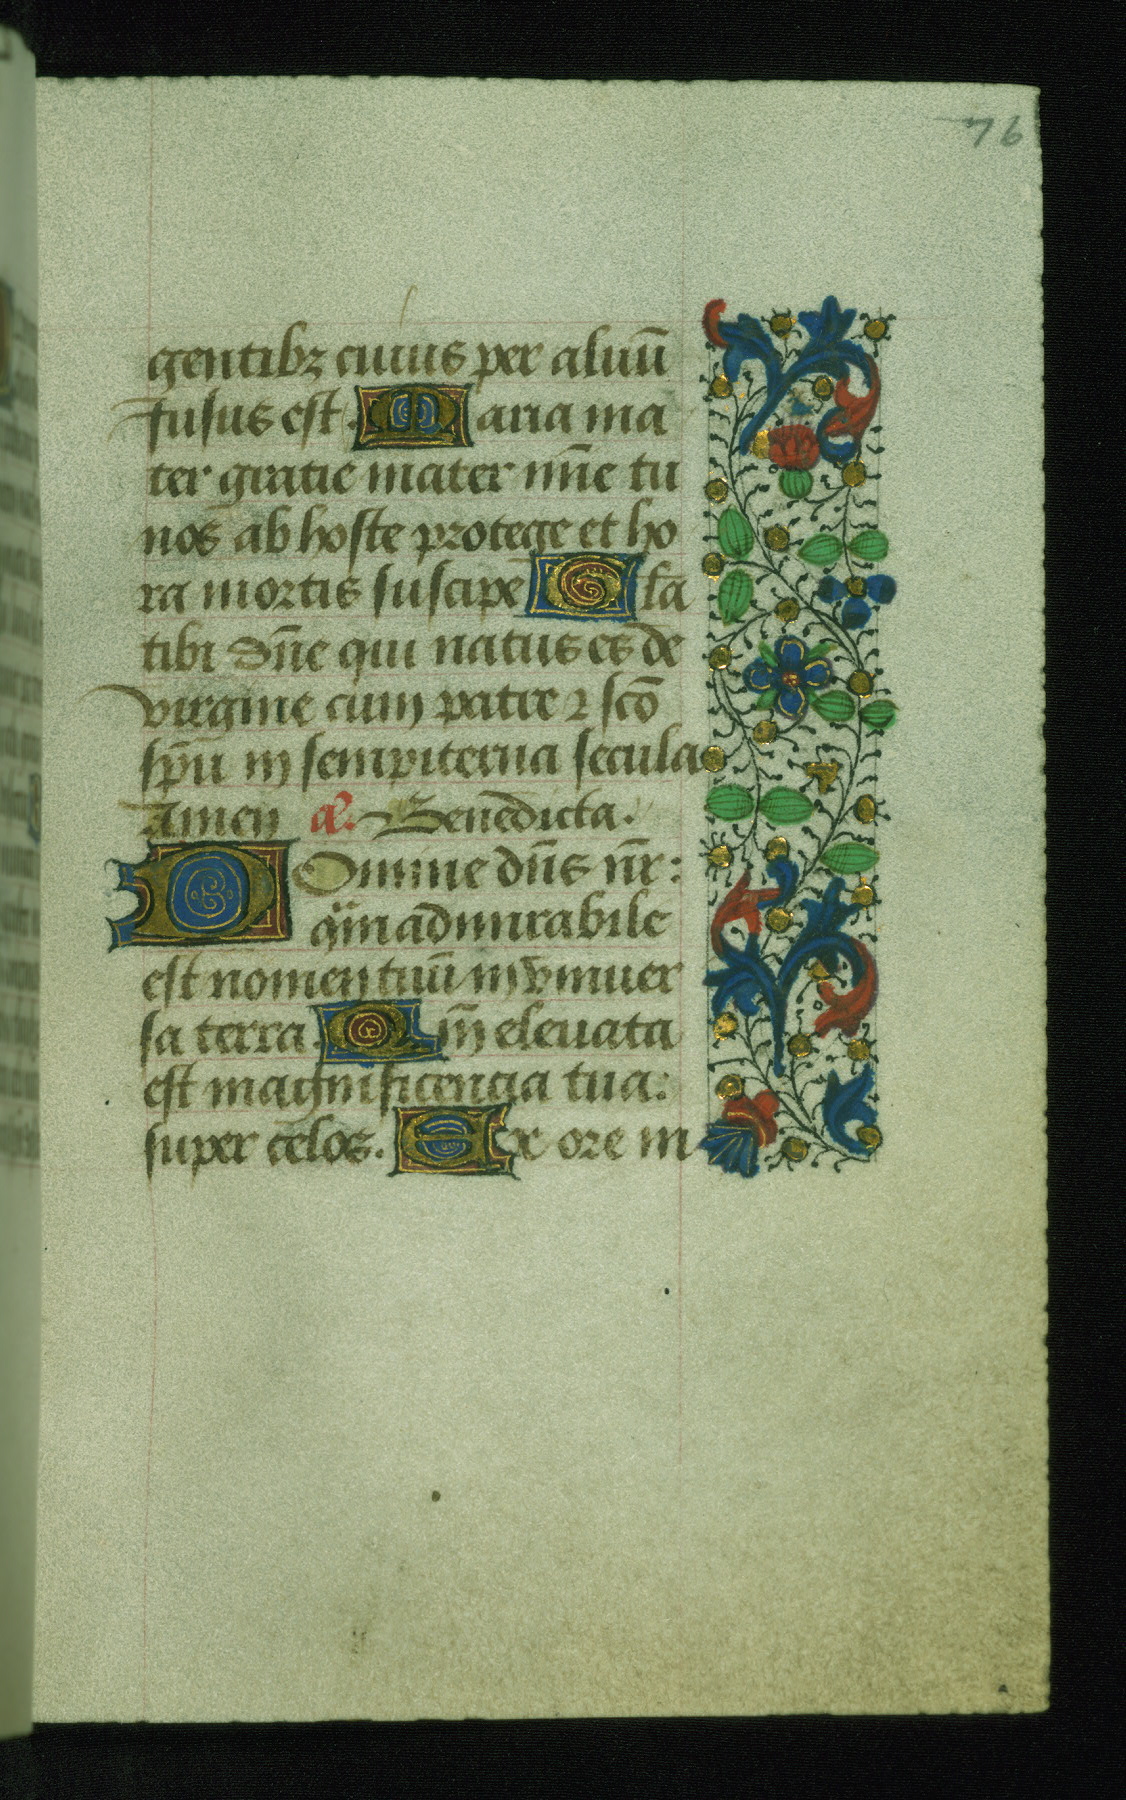 76
gentibz cuius per aluū
fusus est. Maria ma
ter gratie mater mīe tu
nos ab hoste protege et ho
ra mortis suscipe Gl̄a
tibi dn̄e qui natus es de
virgine cum patre ⁊ sc̄o
sp̄u in sempiterna secula
Amen a͞. Benedicta.
Domine dn̄s nr̄:
qm̄ admirabile
est nomen tuū in vniuer
sa terra. Qm̄ eleuata
est magnificencia tua:
super celos. Ex ore in